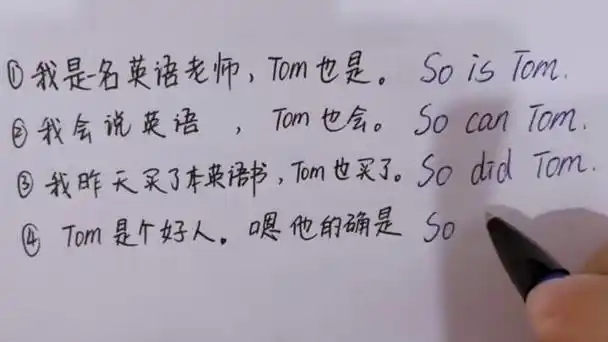 ① 我是一名英语老师，Tom也是。 So is Tom.
② 我会说英语 ， Tom也会。 So can Tom.
③ 我昨天买了本英语书，Tom也买了。 So did Tom.
④ Tom是个好人。嗯他的确是 So